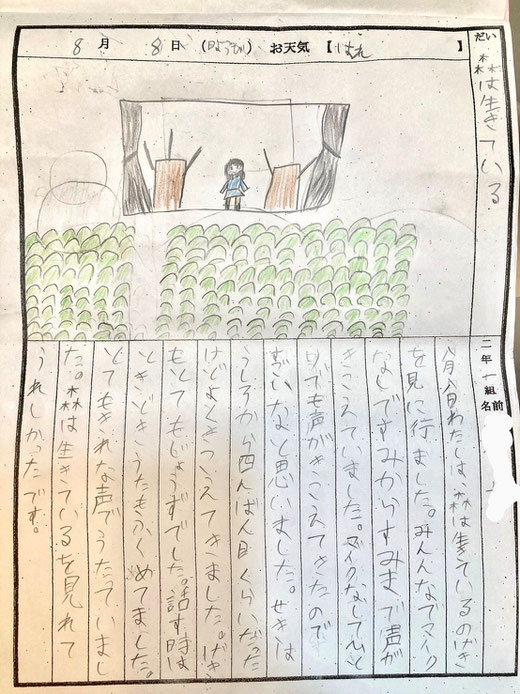 8月 8日 (日ようび) お天気【はれ】
だい 森は生きている
二年一組
名前
八月八日わたしは、森は生きているのげき
を見に行きました。みんなでマイク
なしですみからすみまで声が
きこえていました。マイクなしでひと
りでも声がきこえてきたので
すごいなと思いました。せきは
うしろから四ばん目くらいだった
けどよくきこえてきました。げき
もとてもじょうずでした。話す時は
ときどきうたもふくめてました。
とてもきれいな声でうたっていまし
た。森は生きているを見れて
うれしかったです。